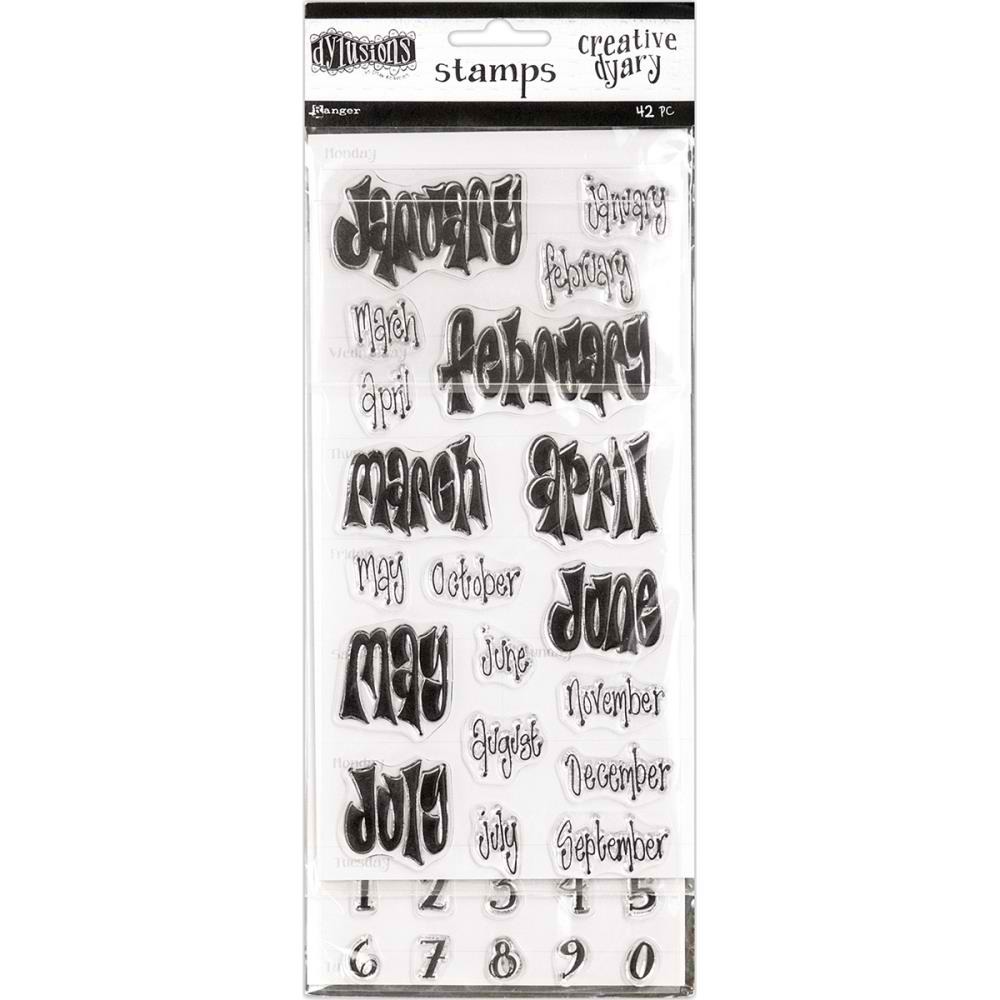 dylusions
creative
dyary
stamps
Ranger
42 PC
Monday
January
january
february
march
february
Wednesday
april
march
april
Friday
may
October
June
may
june
November
august
Monday
December
July
july
September
Tuesday
1 2 3 4 5
6 7 8 9 0